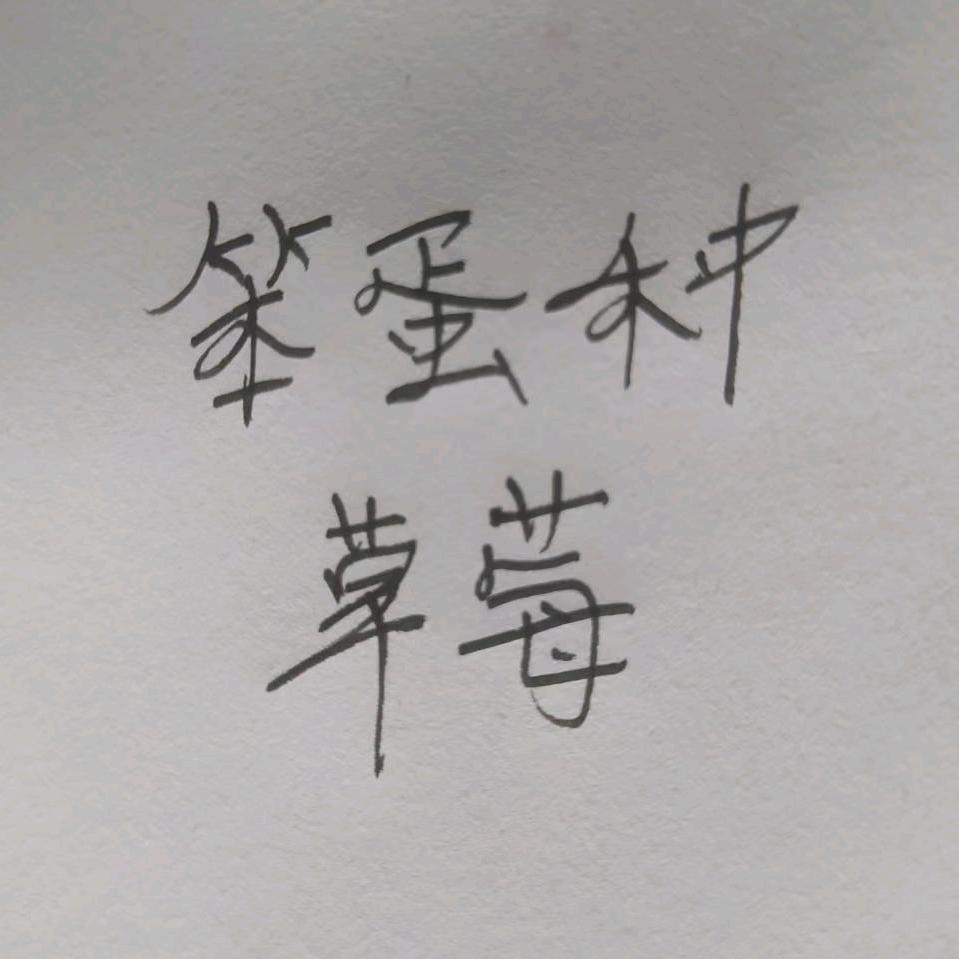 笨蛋种
草莓